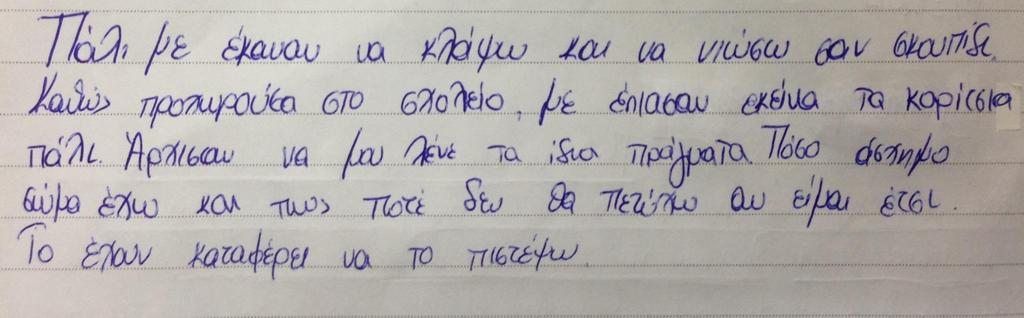 Πάλι με έκαναν να κλάψω και να νιώσω σαν σκουπίδι.
Καθώς προχωρούσα στο σχολείο, με έπιασαν εκείνα τα κορίτσια
πάλι. Άρχισαν να μου λένε τα ίδια πράγματα. Πόσο άσχημο
σώμα έχω και πως ποτέ δεν θα πετύχω αν είμαι έτσι.
Το έχουν καταφέρει να το πιστέψω.